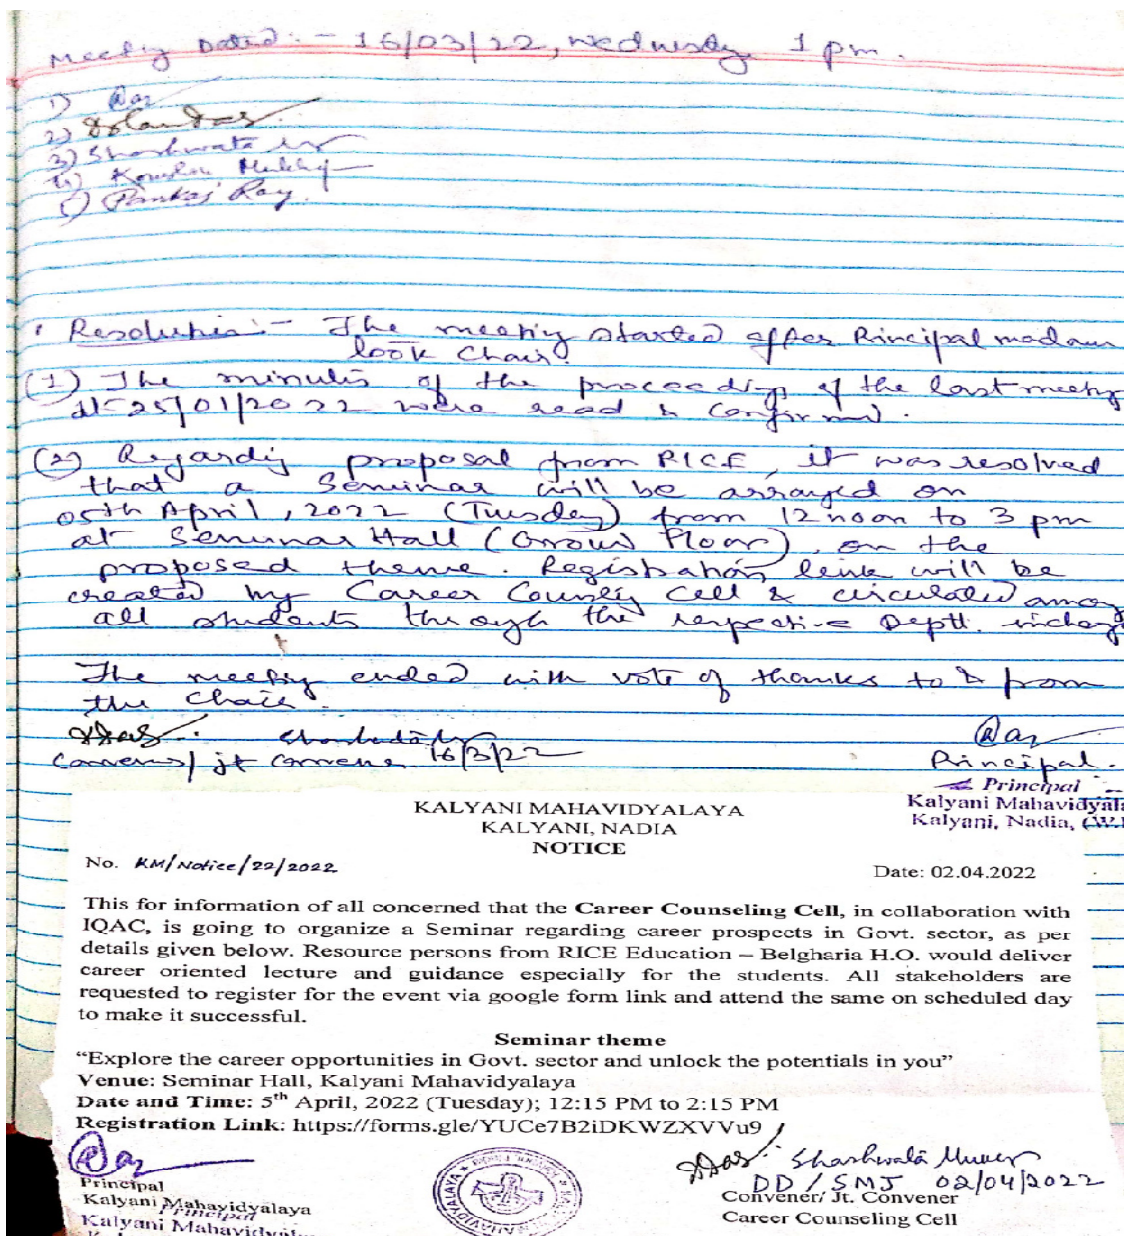 Meeting Dated :- 16/03/22, Wednesday 1 pm.
1)
2)
3) Shashwata
4)
5) Pankaj Ray.
Resolution :- The meeting started after Principal madam
took Chair.
(1) The minutes of the proceedings of the last meeting
dt- 25/01/2022 were read & confirmed.
(2) Regarding proposal from RICE, it was resolved
that a Seminar will be arranged on
05th April, 2022 (Tuesday) from 12 noon to 3 pm
at Seminar Hall (Ground Floor), on the
proposed theme. Registration link will be
created by Career Counslg Cell & circulated among
all students through the respective Deptt. incharge
The meeting ended with vote of thanks to & from
the Chair.
DDas. 16/3/22
Convenor/ jt convener Principal.
Principal
Kalyani Mahavidyala
Kalyani, Nadia, (W.
KALYANI MAHAVIDYALAYA
KALYANI, NADIA
NOTICE
No. KM/Notice/22/2022 Date: 02.04.2022
This for information of all concerned that the Career Counseling Cell, in collaboration with
IQAC, is going to organize a Seminar regarding career prospects in Govt. sector, as per
details given below. Resource persons from RICE Education – Belgharia H.O. would deliver
career oriented lecture and guidance especially for the students. All stakeholders are
requested to register for the event via google form link and attend the same on scheduled day
to make it successful.
Seminar theme
“Explore the career opportunities in Govt. sector and unlock the potentials in you”
Venue: Seminar Hall, Kalyani Mahavidyalaya
Date and Time: 5th April, 2022 (Tuesday); 12:15 PM to 2:15 PM
Registration Link: https://forms.gle/YUCe7B2iDKWZXVVu9
DDas. Shashwata
DD/SMJ 02/04/2022
Principal
Convener/ Jt. Convener
Kalyani Mahavidyalaya
Principal
Career Counseling Cell
Kalyani Mahavidyala